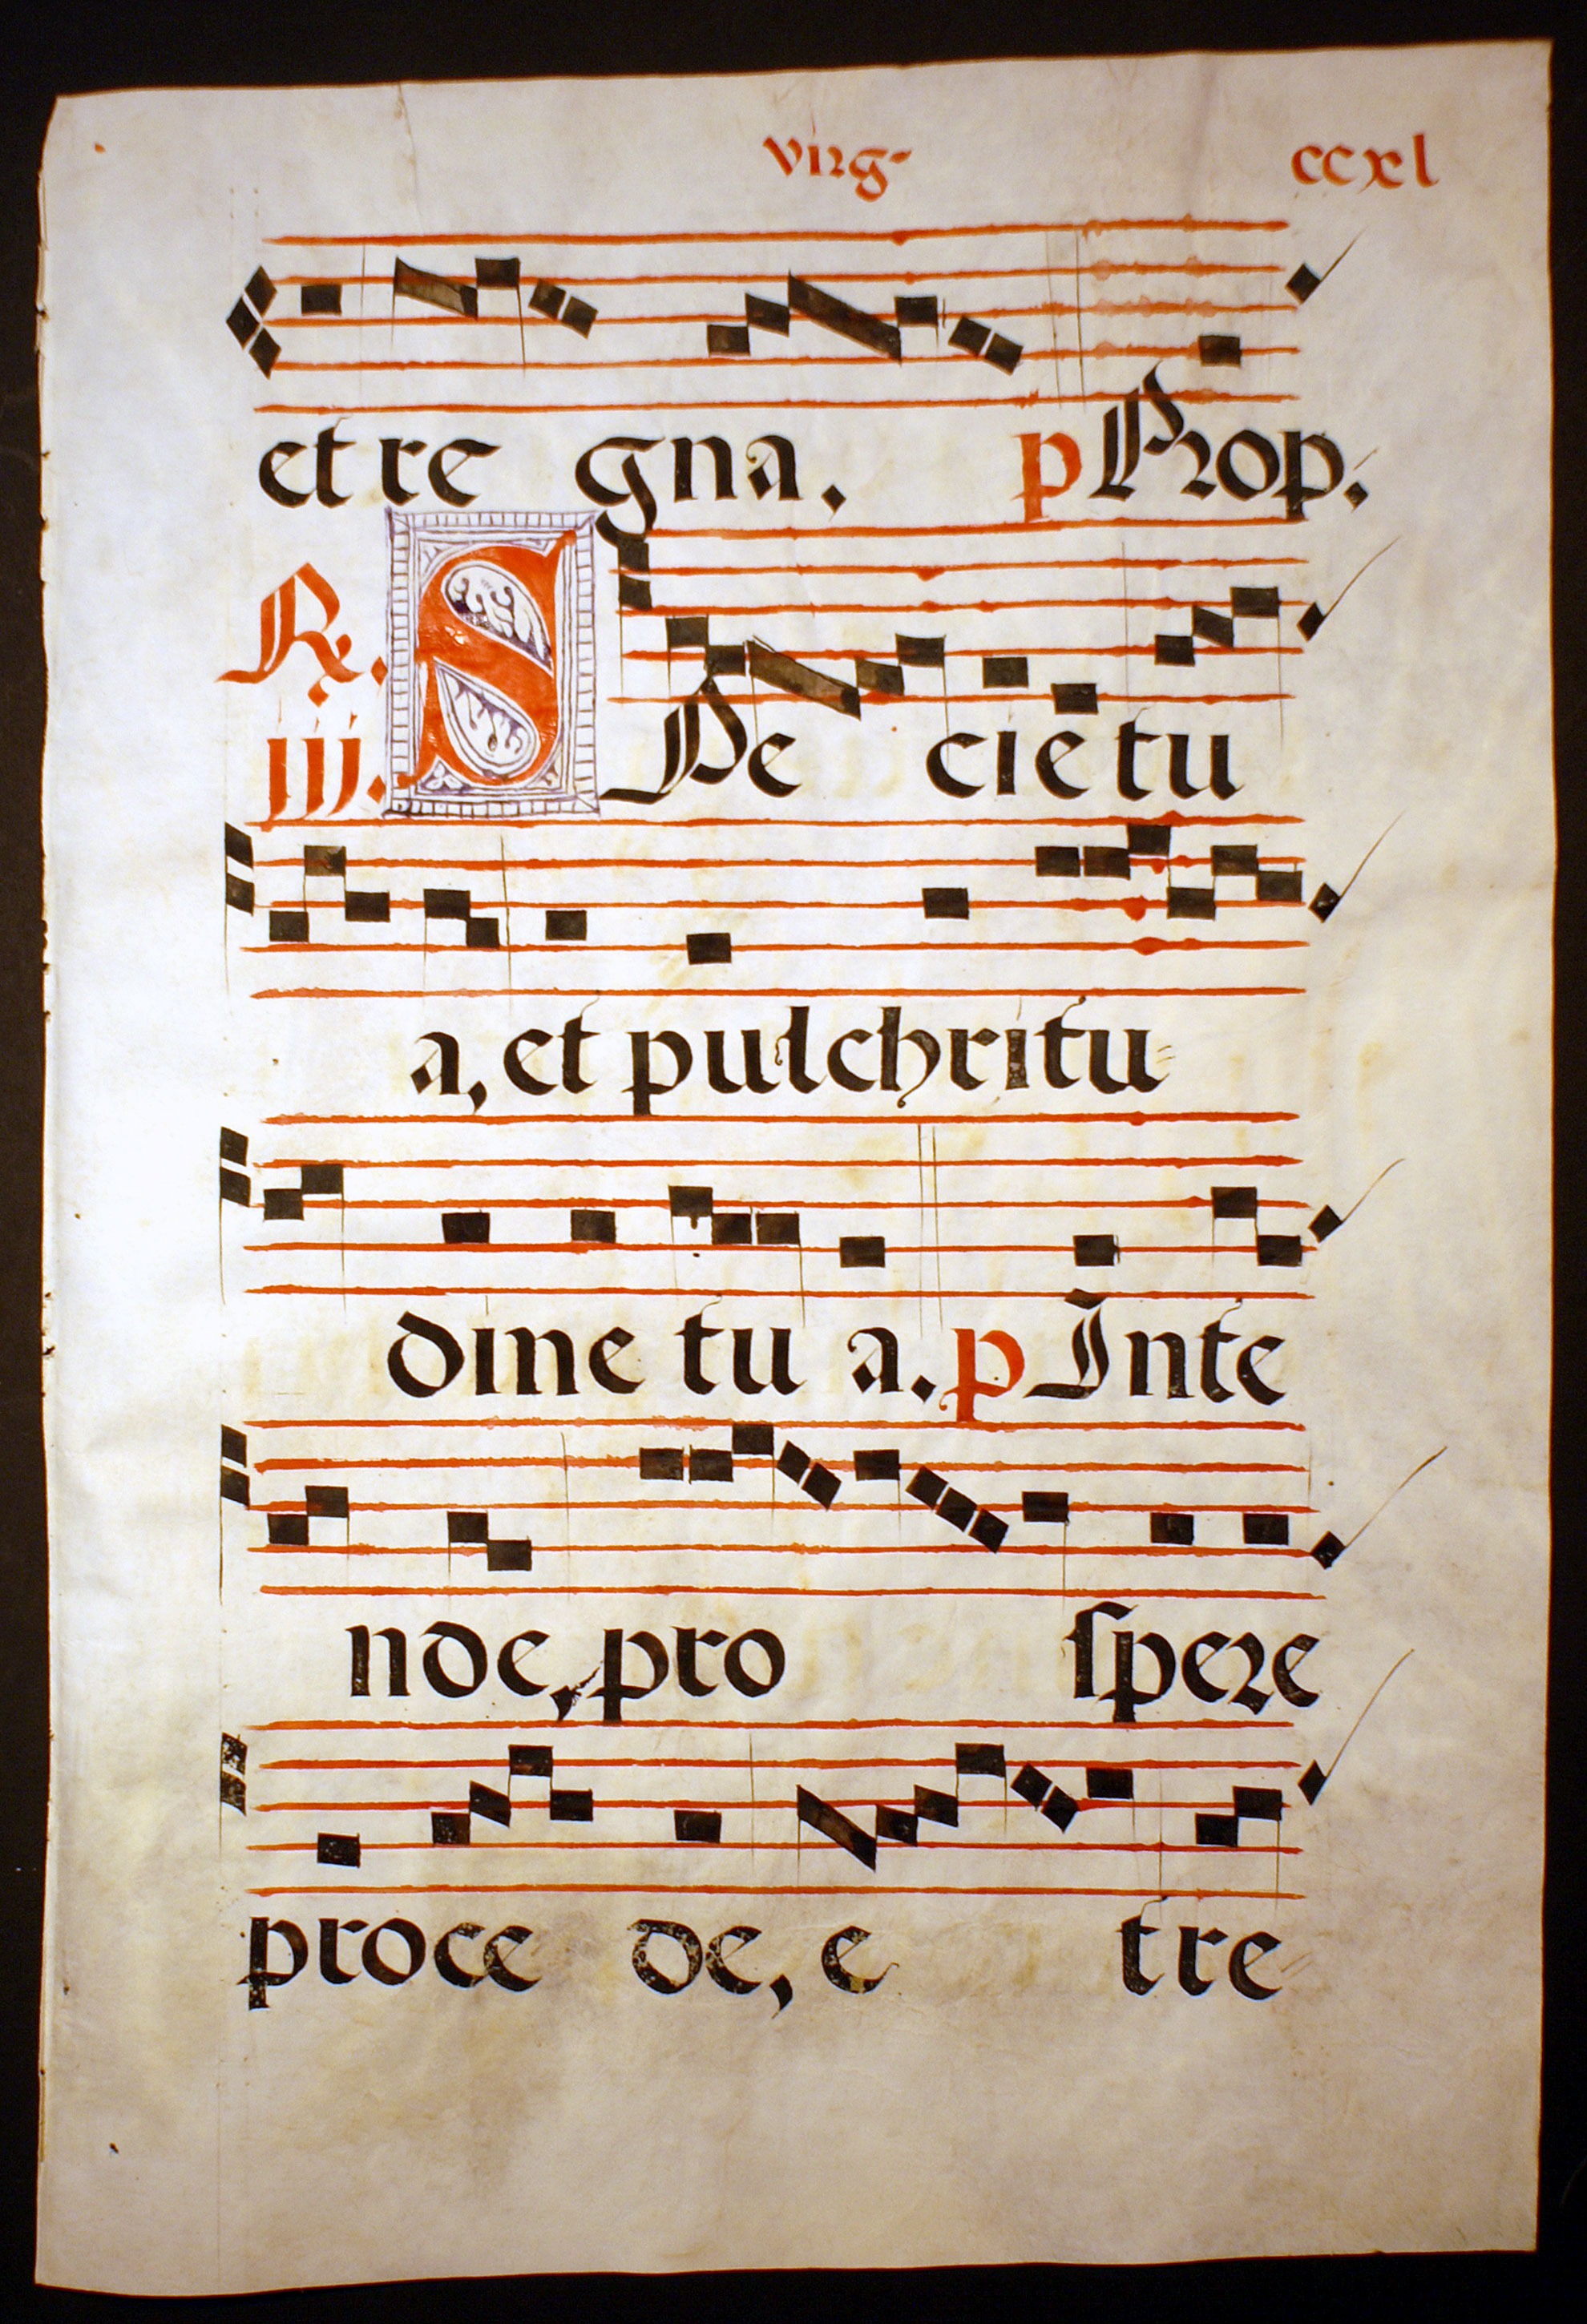 virg ccxl
et re gna. p Prop.
R. S Pe cie tu
iij.
a, et pulchritu
dine tu a. p Inte
nde, pro spere
proce de, e tre